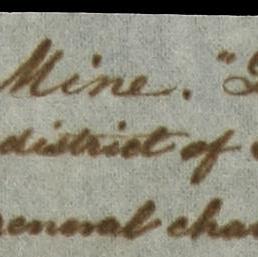 Mine. "
district of
general cha